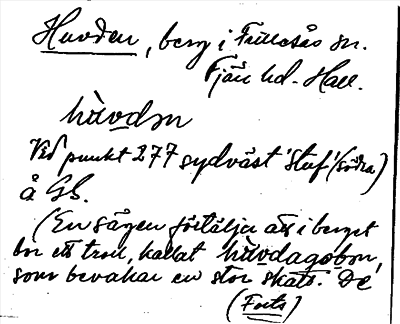 Huvden, berg i Frillesås sn.
Fjäre hd. Hall.
hùvdn
Vid punkt 277 sydväst 'stuf' (södra)
å GS.
(En sägen förtäljer att i berget
bor ett troll, kallat hùvdagobm,
som bevakar en stor skatt. De
(Forts)